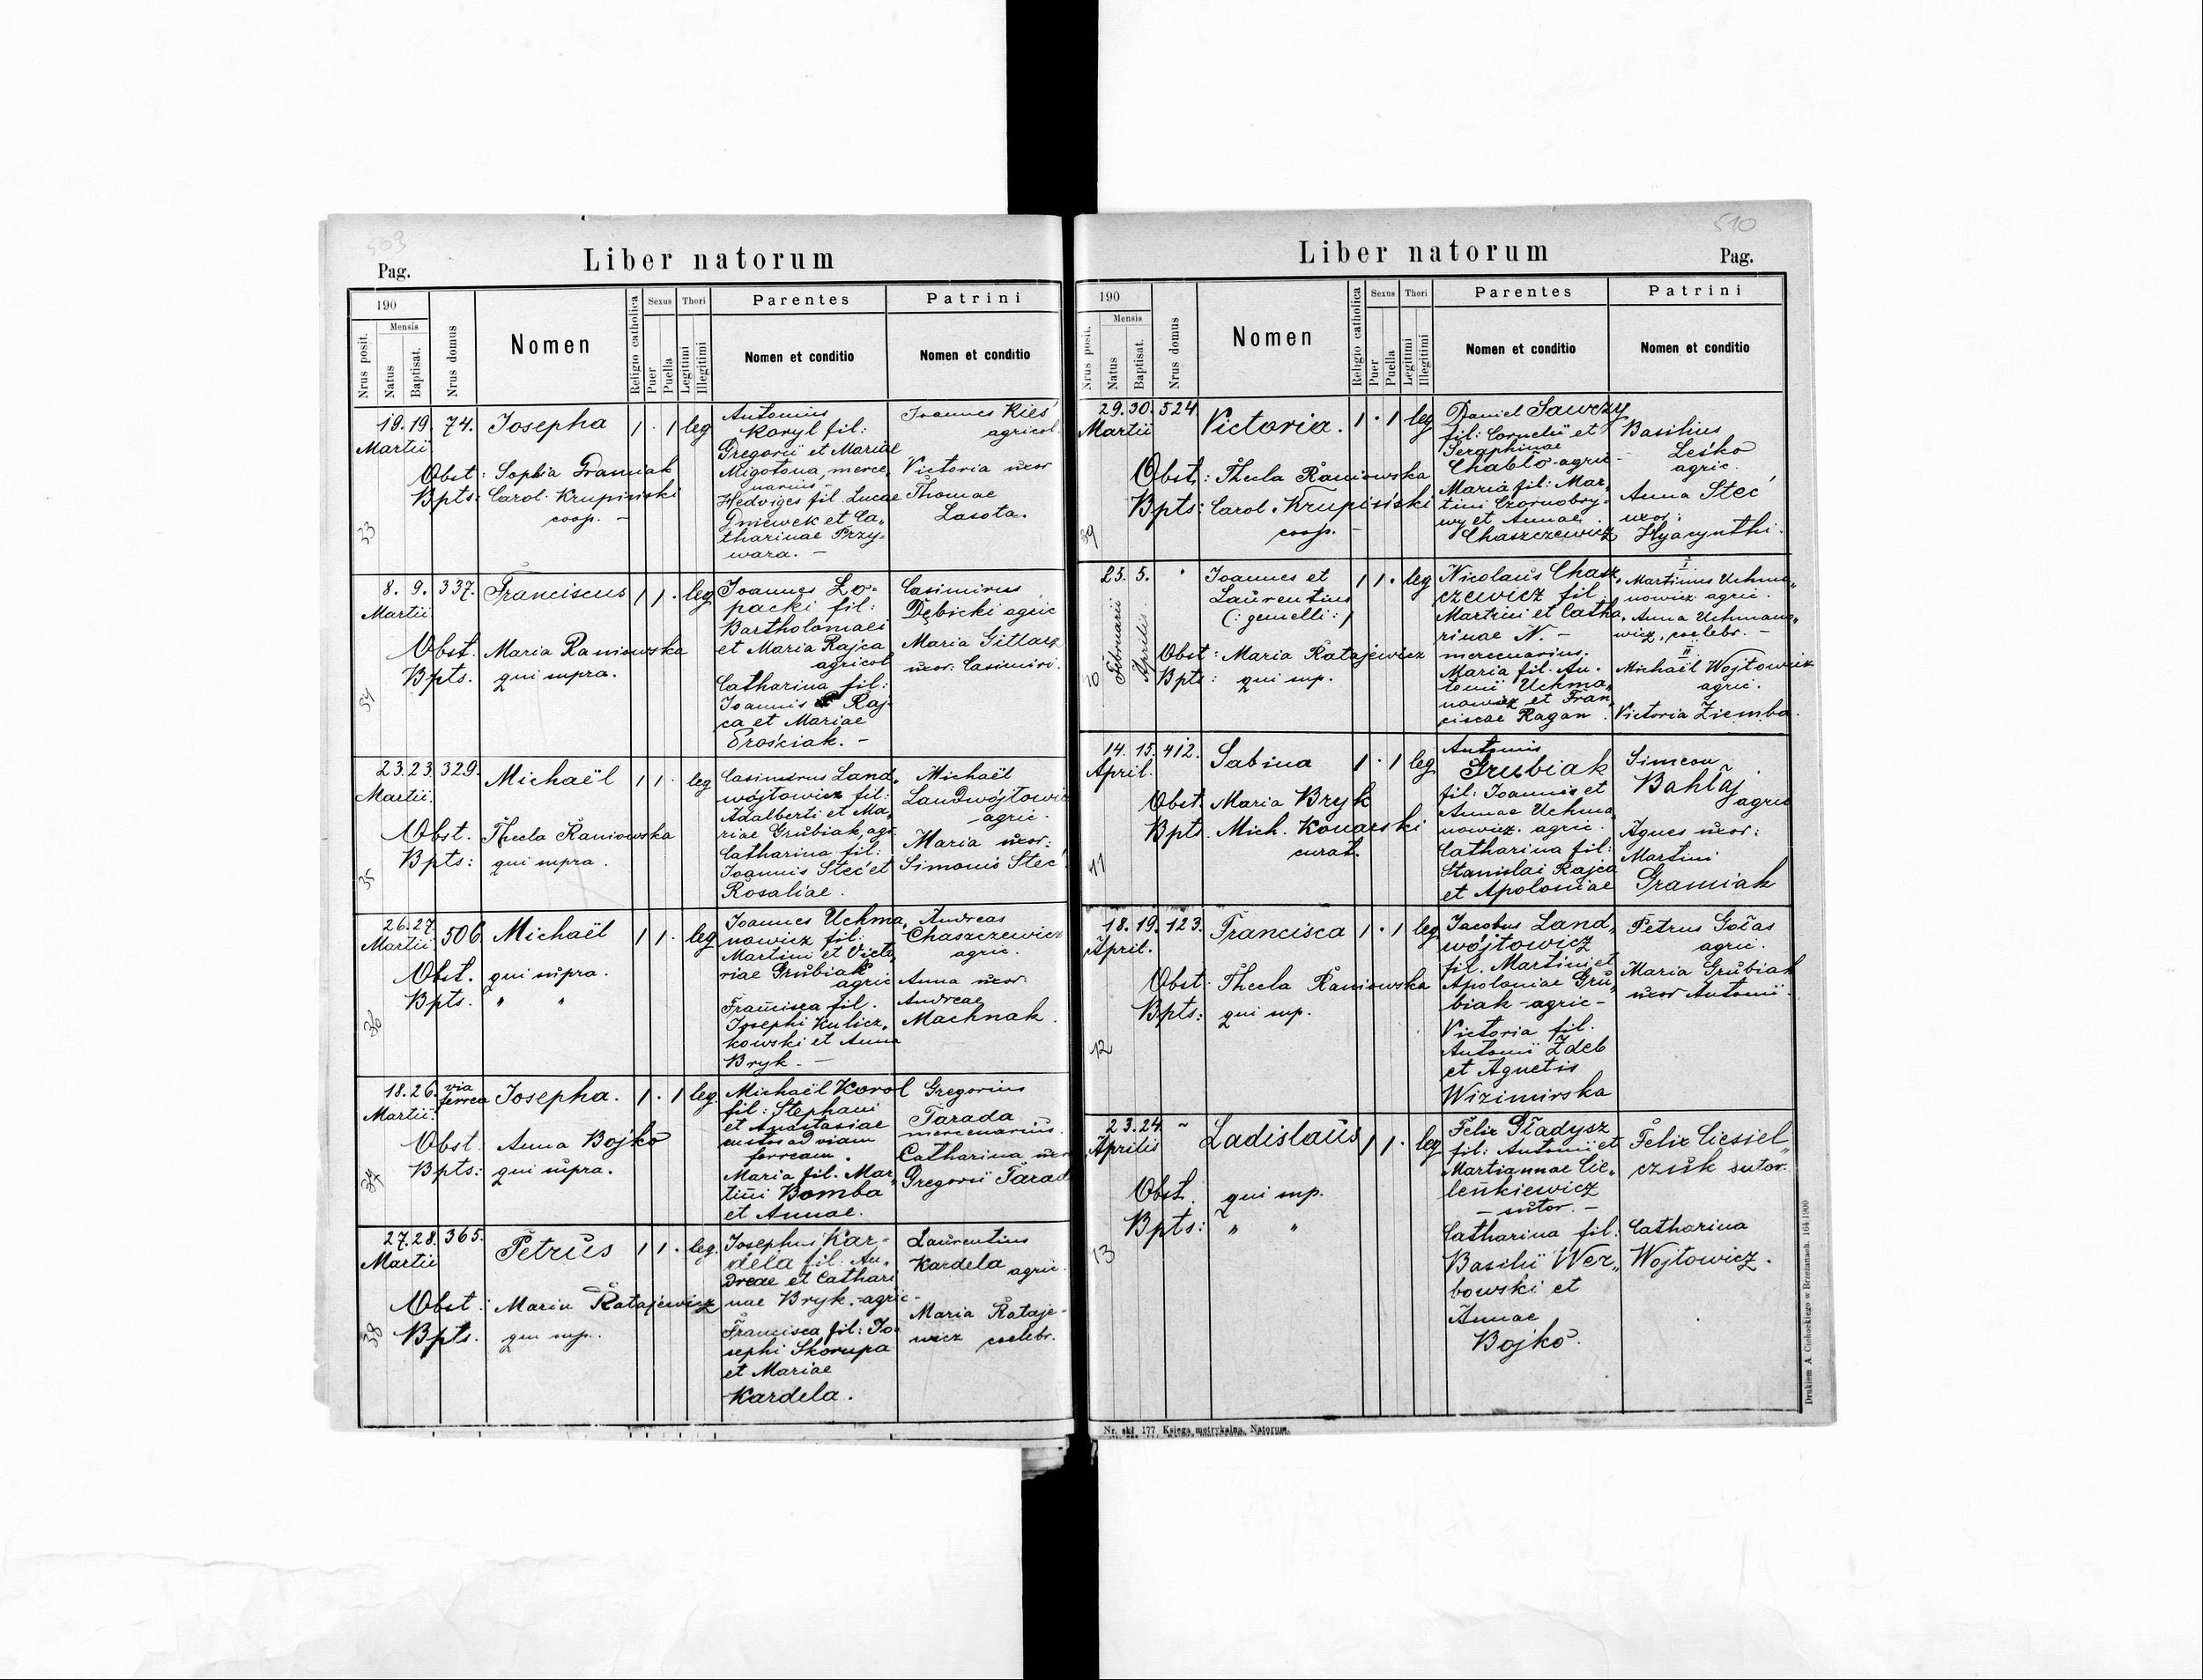 503
Pag.
Liber natorum
190
Nrus posit.
Mensis
Natus
Baptisat.
Nrus domus
Nomen
Religio catholica
Sexus
Puer
Puella
Thori
Legitimi
Illegitimi
Parentes
Nomen et conditio
Patrini
Nomen et conditio
33
19. 19. 74. Josepha 1 . 1 leg
Martii
Obst: Sophia Gramiak
Bpts: Carol. Krupiński
coop. –
Antonius
Koryl fil:
Gregorii et Mariae
Migotona, merce,
narius, –
Hedviges fil. Lucae
Gniewek et Ca,,
tharinae Przy=
wara. –
Joannes Kieś
agricol.
Victoria uxor
Thomae
Lasota.
34
8. 9. 337. Franciscus 1 1 . leg
Martii
Obst. Maria Raniowska
Bpts. qui supra.
Joannes Ło-
packi fil:
Bartholomaei
et Maria Rajca
agricol
Catharina fil:
Joannis Raj-
ca et Mariae
Prościak. –
Casimirus
Dębicki agric
Maria Gittarz
uxor: Casimiri.
35
23. 23. 329. Michaël 1 1 . leg
Martii.
Obst. Thecla Raniowska
Bpts: qui supra.
Casimirus Land,,
wójtowicz fil:
Adalberti et Ma,,
riae Grubiak, agr.
Catharina fil:
Joannis Steć et
Rosaliae.
Michaël
Landwójtowic
agric.
Maria uxor:
Simonis Steć.
36
26. 27. 506 Michaël 1 1 . leg
Martii.
Obst. qui supra.
Bpts. " "
Joannes Uchma,,
nowicz fil:
Martini et Victo,,
riae Grubiak
agric
Francisca fil.
Josephi Kulicz,,
kowski et Anna
Bryk –
Andreas
Chaszczewicz
agric.
Anna uxor.
Andreae
Machnak.
37
18. 26. via
ferrea Josepha. 1 . 1 leg.
Martii.
Obst. Anna Bojko
Bpts: qui supra.
Michaël Korol
fil: Stephani
et Anastasiae
custos ad viam
ferream.
Maria fil. Mar,,
tini Bomba
et Annae.
Gregorius
Tarada
mercenarius.
Catharina uxor
Gregorii Tarad
38
27. 28. 365. Petrus 1 1 . leg.
Martii
Obst: Maria Ratajewicz
Bpts. qui sup.
Josephus Kar-
dela fil: An,,
dreae et Cathari
nae Bryk. -agric-
Francisca fil: Jo=
sephi Skorupa
et Mariae
Kardela.
Laurentius
Kardela agric.
Maria Rataje-
wicz coelebs.
510
Liber natorum
Pag.
190
Nrus posit.
Mensis
Natus
Baptisat.
Nrus domus
Nomen
Religio catholica
Sexus
Puer
Puella
Thori
Legitimi
Illegitimi
Parentes
Nomen et conditio
Patrini
Nomen et conditio
39
29. 30. 524. Victoria. 1 . 1 leg
Martii
Obst.: Thecla Raniowska
Bpts: Carol. Krupiński
coop. –
Daniel Sawczy
fil: Cornelii et
Seraphinae
Chabło -agric-
Maria fil: Mar,
tini Czornobry-
wy et Annae
Chaszczewicz
Basilius
Leśko
agric.
Anna Steć
uxor:
Hyacynthi.
25. 5. Joannes et 1 1 . leg
Februarii
Aprilis
Laurentius
(: gemelli :)
Obst: Maria Ratajewicz
Bpts: qui sup.
Nicolaus Chasz,
czewicz fil.
Martini et Catha,
rinae N. –
mercenarius.
Maria fil. An-
tonii Uchma,,
nowicz et Fran,
ciscae Ragan.
I
Martinus Uchma,,
nowicz agric.
Anna Uchmano,,
wicz, coelebs. –
II
Michaël Wojtowicz
agric.
Victoria Ziemba.
14. 15. 412. Sabina 1 . 1 leg
April.
Obst. Maria Bryk
Bpts. Mich. Konarski
curat.
Antonius
Grubiak
fil: Joannis et
Annae Uchma,
nowicz. agric.
Catharina fil:
Stanislai Rajca
et Apoloniae
Simeon
Bahłaj
agric
Agnes uxor:
Martini
Gramiak
12
18. 19. 123. Francisca 1 . 1 leg
April.
Obst. Thecla Raniowska
Bpts: qui sup.
Jacobus Land,,
wójtowicz
fil. Martini et
Apoloniae Gru,,
biak -agric-
Victoria fil.
Antonii Zdeb
et Agnetis
Wizimirska
Petrus Gołas
agric.
Maria Grubiak
uxor Antonii.
13
23. 24. " Ladislaus 1 1 . leg
Aprilis
Obst. qui sup.
Bpts: " "
Felix Gładysz
fil: Antonii et
Martiannae Cie,,
lenkiewicz
– sutor. –
Catharina fil:
Basilii Wer,,
bowski et
Annae
Bojko.
Felix Ciesiel,,
czuk sutor.
Catharina
Wojtowicz.
Nr. skł. 177. Księga metrykalna. Natorum.
Drukiem A. Cichockiego w Brzeżanach. 164.1900